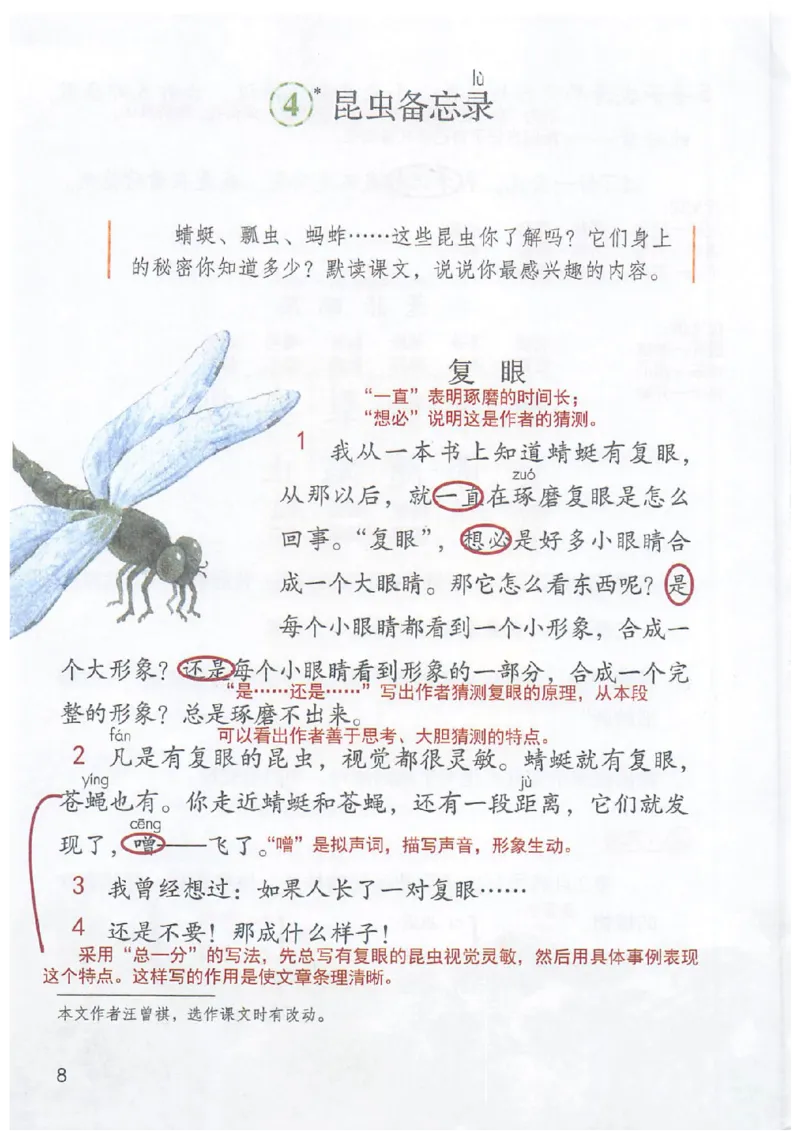 lù
4 * 昆虫备忘录
蜻蜓、瓢虫、蚂蚱……这些昆虫你了解吗？它们身上
的秘密你知道多少？默读课文，说说你最感兴趣的内容。
复 眼
“一直”表明琢磨的时间长；
“想必”说明这是作者的猜测。
1 我从一本书上知道蜻蜓有复眼，
zuó
从那以后，就一直在琢磨复眼是怎么
回事。“复眼”，想必是好多小眼睛合
成一个大眼睛。那它怎么看东西呢？是
每个小眼睛都看到一个小形象，合成一
个大形象？还是每个小眼睛看到形象的一部分，合成一个完
“是……还是……”写出作者猜测复眼的原理，从本段
整的形象？总是琢磨不出来。
fán 可以看出作者善于思考、大胆猜测的特点。
2 凡是有复眼的昆虫，视觉都很灵敏。蜻蜓就有复眼，
yíng jù
苍蝇也有。你走近蜻蜓和苍蝇，还有一段距离，它们就发
cēng
现了，噌——飞了。“噌”是拟声词，描写声音，形象生动。
3 我曾经想过：如果人长了一对复眼……
4 还是不要！那成什么样子！
采用“总—分”的写法，先总写有复眼的昆虫视觉灵敏，然后用具体事例表现
这个特点。这样写的作用是使文章条理清晰。
本文作者汪曾祺，选作课文时有改动。
8